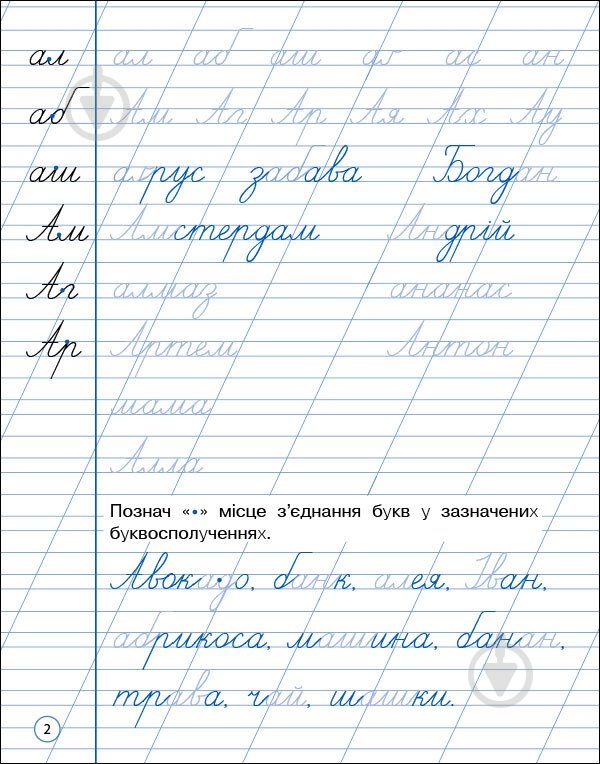 ал ал аб аш аґ ас ан
аб Ам Аг Ар Ая Ах Ау
аш аґрус забава Богдан
Ам Амстердам Андрій
Аг алмаз ананас
Ар Артем Антон
мама
Алла
Познач «•» місце з’єднання букв у зазначених
буквосполученнях.
Авокадо, банк, алея, Іван,
абрикоса, машина, банан,
трава, чай, шашки.
2